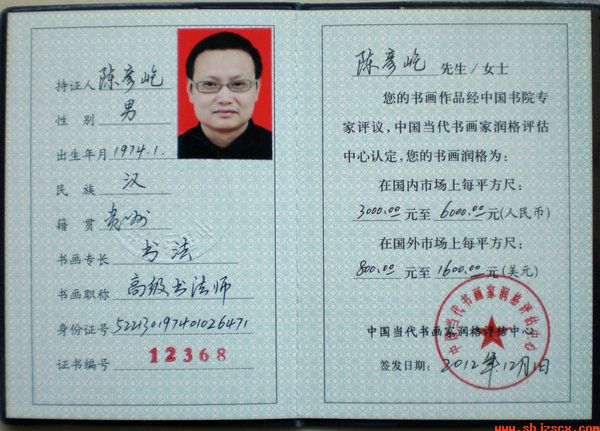 持证人 陈彦屹
性 别 男
出生年月 1974.1.
民 族 汉
籍 贯 贵州
书画专长 书法
书画职称 高级书法师
身份证号 522130197401026471
证书编号 12368
陈彦屹 先生/女士
您的书画作品经中国书院专
家评议，中国当代书画家润格评估
中心认定，您的书画润格为：
在国内市场上每平方尺：
3000.00元至 6000.00元(人民币)
在国外市场上每平方尺：
800.00元至1600.00元(美元)
中国当代书画家润格评估中心
中国当代书画家润格评估中心
签发日期：2012年12月1日
www.shjzscx.com